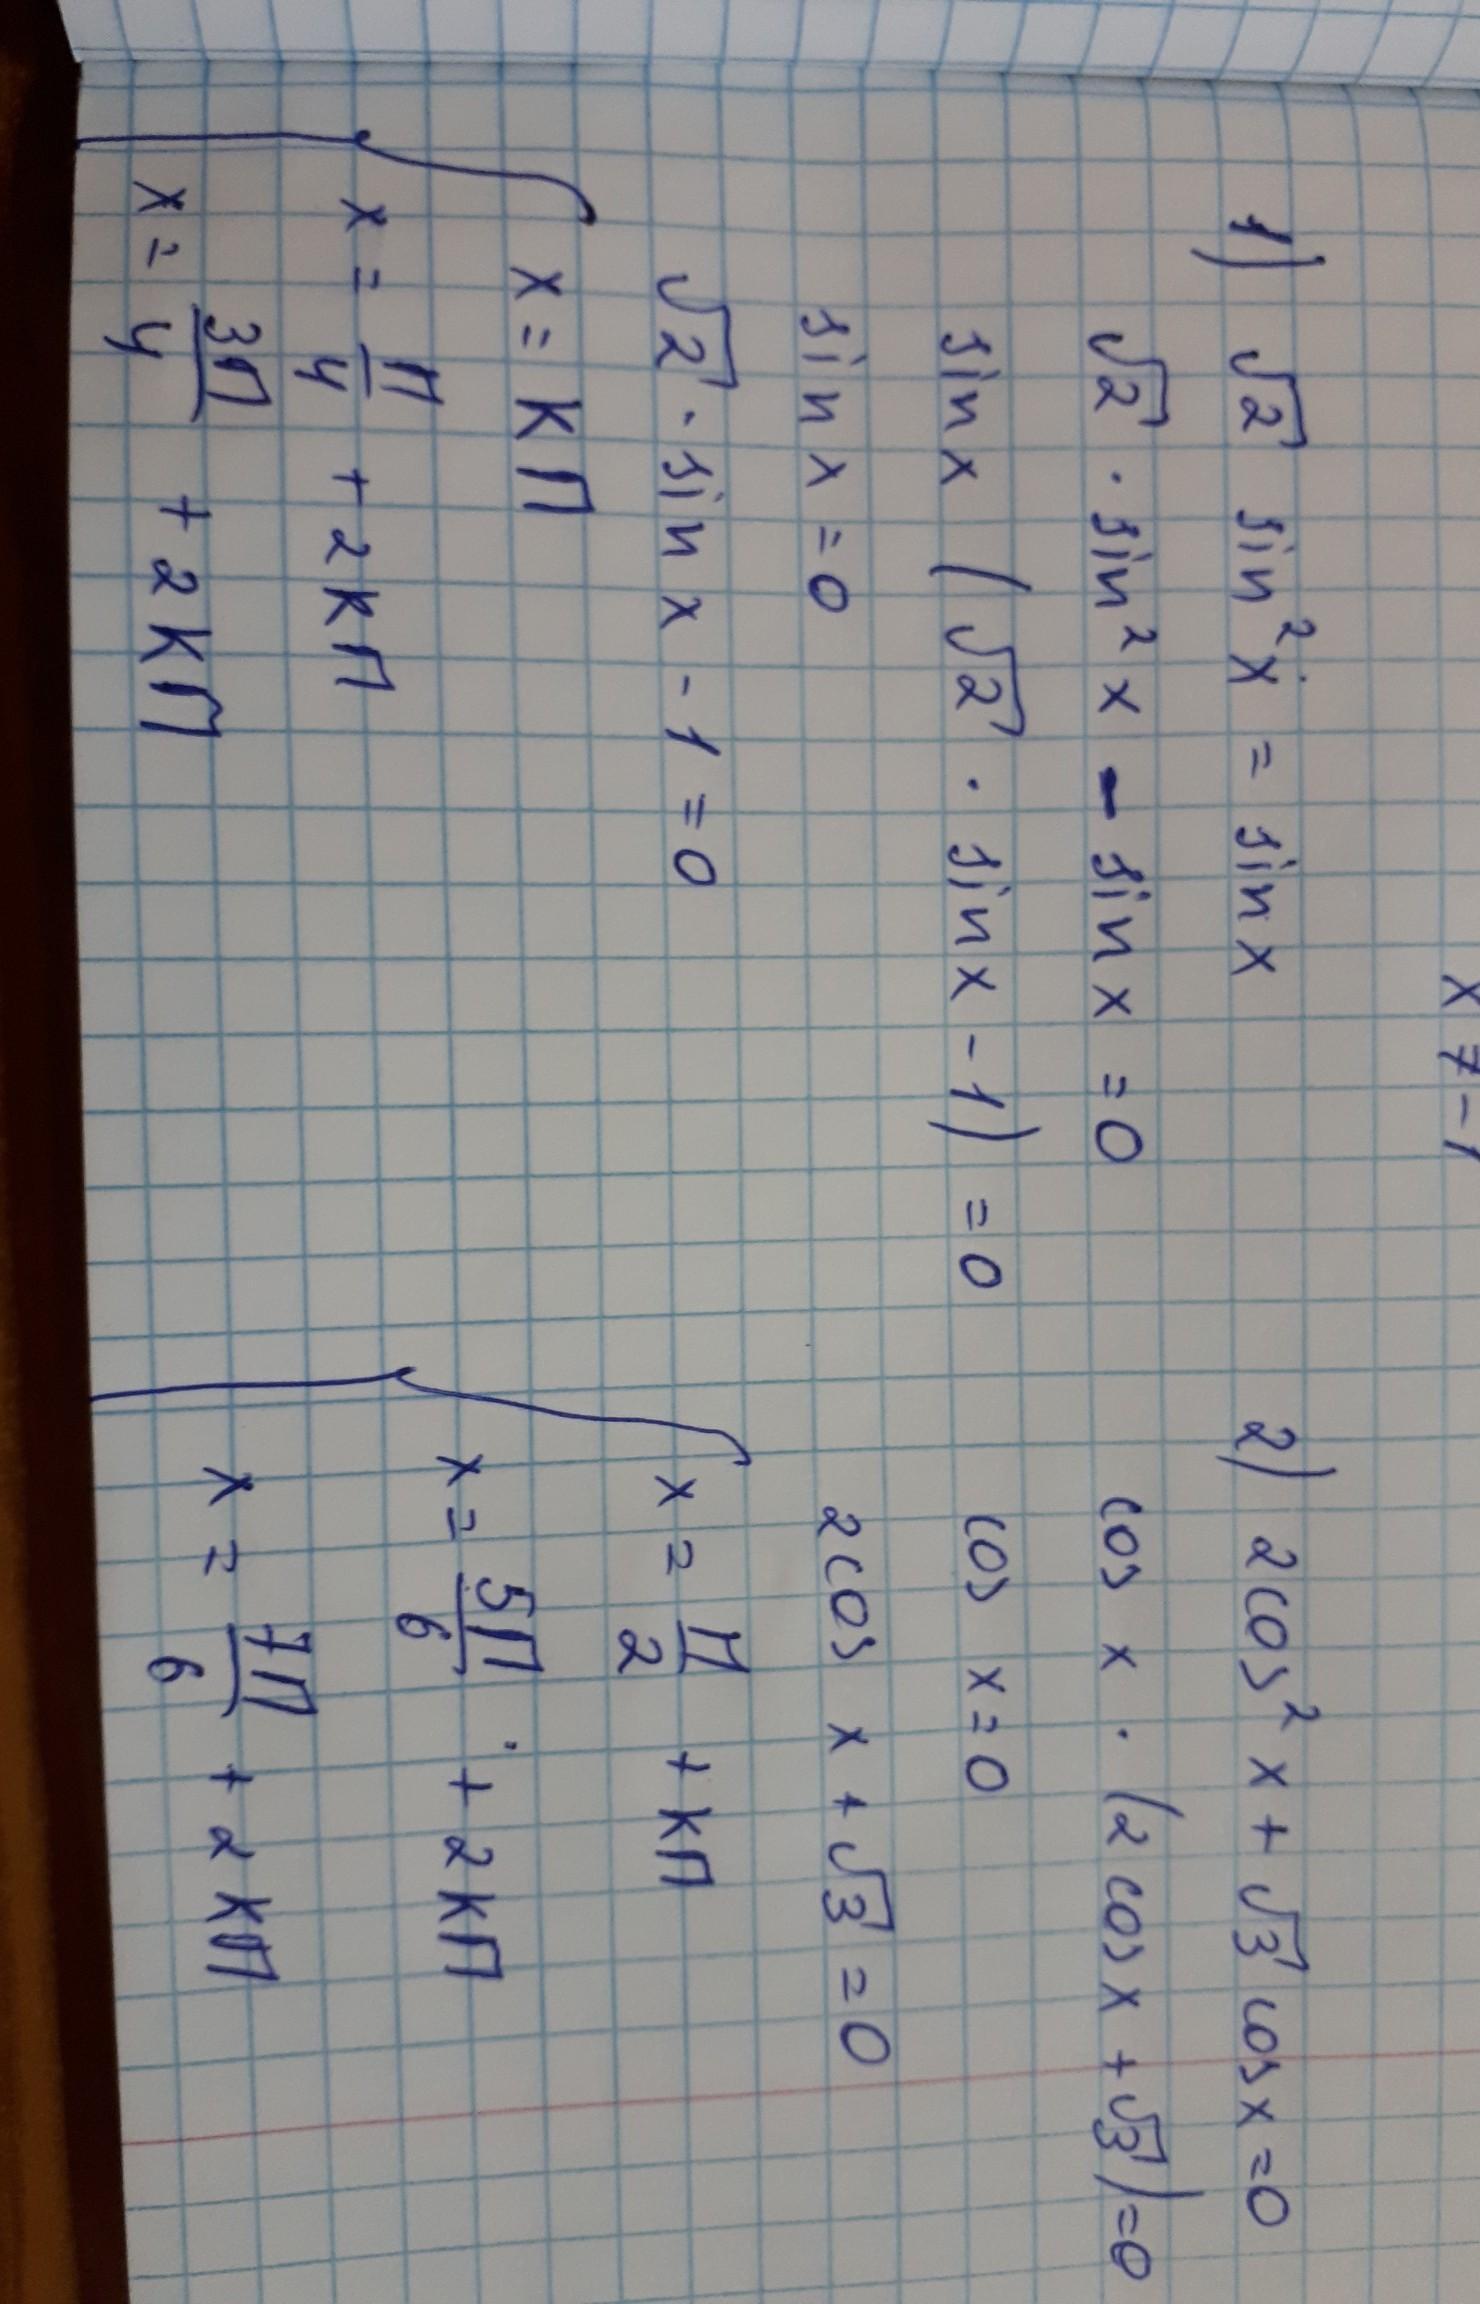 x ≠ -1
1) √2 sin²x = sin x
√2 · sin²x - sin x = 0
sin x (√2 · sin x - 1) = 0
sin x = 0
√2 · sin x - 1 = 0
x = kπ
x = π/4 + 2kπ
x = 3π/4 + 2kπ
2) 2cos²x + √3 cos x = 0
cos x · (2 cos x + √3) = 0
cos x = 0
2cos x + √3 = 0
x = π/2 + kπ
x = 5π/6 + 2kπ
x = 7π/6 + 2kπ